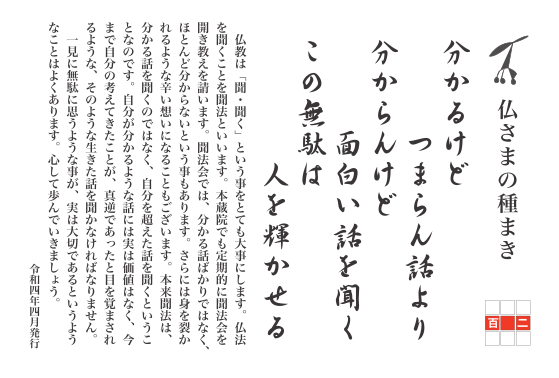 仏さまの種まき
百二
分かるけど
つまらん話より
分からんけど
面白い話を聞く
この無駄は
人を輝かせる
仏教は「聞・聞く」という事をとても大事にします。仏法
を聞くことを聞法といいます。本蔵院でも定期的に聞法会を
開き教えを請います。聞法会では、分かる話ばかりではなく、
ほとんど分からないという事もあります。さらには身を裂か
れるような辛い想いになることもございます。本来聞法は、
分かる話を聞くのではなく、自分を超えた話を聞くというこ
となのです。自分が分かるような話には実は価値はなく、今
まで自分の考えてきたことが、真逆であったと目を覚まされ
るような、そのような生きた話を聞かなければなりません。
一見に無駄に思うような事が、実は大切であるというよう
なことはよくあります。心して歩んでいきましょう。
令和四年四月発行